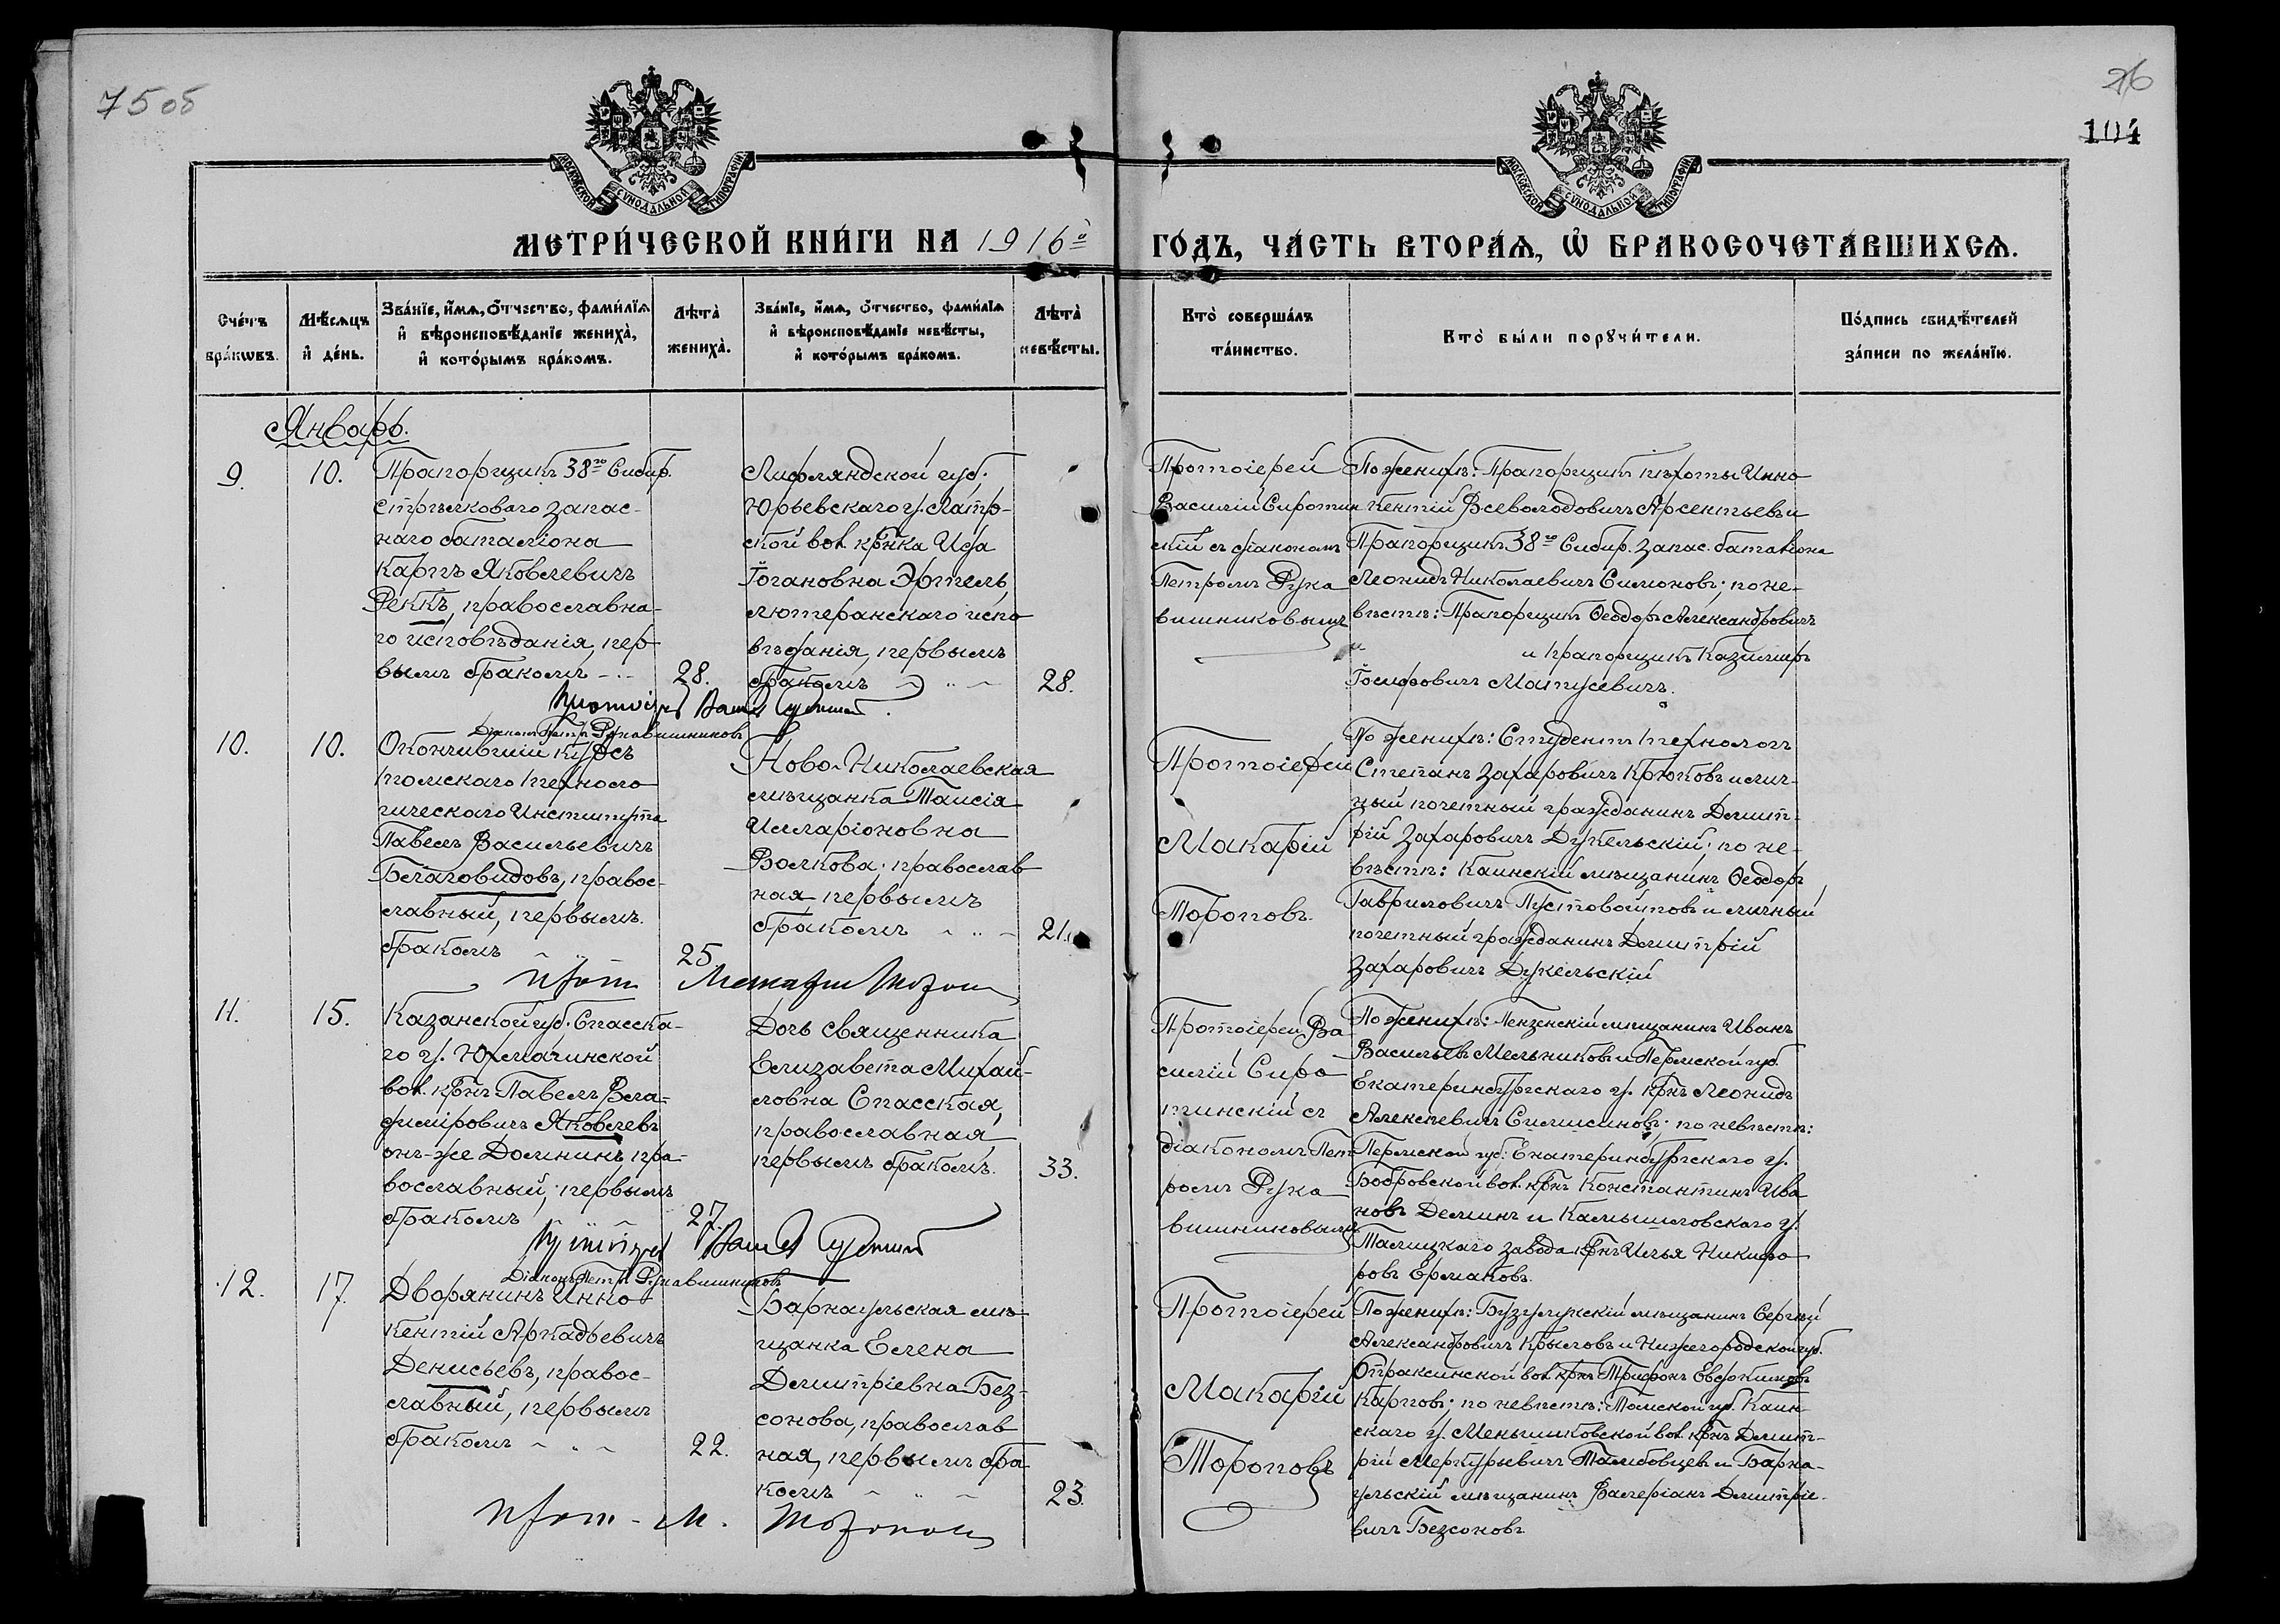 75 об
26
104
МОСКОВСКОЙ СѴНОДАЛЬНОЙ ТИПОГРАФИИ
МОСКОВСКОЙ СѴНОДАЛЬНОЙ ТИПОГРАФИИ
МЕТРИ́ЧЕСКОЙ КНИ́ГИ НА 1916й ГО́ДЪ, ЧА́СТЬ ВТОРА́Ѧ, Ѽ БРАКОСОЧЕТА́ВШИХСѦ.
Сче́тъ бра́кѡвъ.
Мѣ́сѧцъ и҆ де́нь.
Зва́нїе, и҆́мѧ, ѻ҆́тчество, фами́лїѧ и҆ вѣроисповѣ́данїе жениха̀, и҆ кото́рымъ бра́комъ.
Лѣта̀ жениха̀.
Зва́нїе, и҆́мѧ, ѻ҆́тчество, фами́лїѧ и҆ вѣроисповѣ́данїе невѣ́сты, и҆ кото́рымъ бра́комъ.
Лѣта̀ невѣ́сты.
Кто̀ соверша́лъ та́инство.
Кто̀ бы́ли порꙋчи́тели.
По́дпись свидѣ́телей за́писи по жела́нїю.
Январь.
9.
10.
Прапорщикъ 38го Сибир.
стрѣлковаго запас-
наго баталіона
Карпъ Яковлевичъ
Реккъ, православна-
го исповѣданія, пер
вымъ бракомъ
28.
Лифляндской губ.
Юрьевскаго у. Латр-
ской вол. кр҃нка Ида
Іогановна Эртель,
лютеранскаго испо
вѣданія, первымъ
бракомъ
28.
Протоіерей
Василій Сиротин
скій съ діакономъ
Петромъ Рука
вишниковымъ
По женихѣ: Прапорщикъ пѣхоты Инно
кентій Всеволодовичъ Арсентьевъ и
Прапорщикъ 38го Сибир. запас. баталіона
Леонидъ Николаевичъ Симоновъ; по не-
вѣстѣ: Прапорщикъ Ѳеодоръ Александровичъ
и прапорщикъ Казимиръ
Іосифовичъ Матусевичъ.
Протоіерей
Діаконъ Петръ Рукавишниковъ
10.
10.
Окончившій курсъ
Томскаго Техноло
гическаго Института
Павелъ Васильевичъ
Благовидовъ, правос-
лавный, первымъ
бракомъ
25.
Ново-Николаевская
мѣщанка Таисія
Илларіоновна
Волкова, православ
ная первымъ
бракомъ
21.
Протоіерей
Макарій
Тороповъ.
По женихѣ: Студентъ технологъ
Степанъ Захаровичъ Крюковъ и лич-
ный почетный гражданинъ Димит-
рій Захаровичъ Дукельскій; по не-
вѣстѣ: Каинскій мѣщанинъ Ѳеодоръ
Гавриловичъ Пустовойтовъ и личный
почетный гражданинъ Димитрій
Захаровичъ Дукельскій
Прот. Макарій Тороповъ
11.
15.
Казанской губ. Спасска-
го у. Юхмачинской
вол. кр҃нъ Павелъ Вла-
диміровичъ Яковлевъ
онъ-же Домнинъ, пра-
вославный, первымъ
бракомъ
27.
Дочь священника
Елизавета Михай-
ловна Спасская,
православная
первымъ бракомъ.
33.
Протоіерей Ва
силій Сиро
тинскій съ
діакономъ Пет
ромъ Рука
вишниковымъ
По женихѣ: Пензенскій мѣщанинъ Иванъ
Васильевъ Мельниковъ и Пермской губ
Екатеринбургскаго у. кр҃нъ Леонидъ
Алексѣевичъ; по невѣстѣ:
Пермской губ: Екатеринбургскаго у.
Бобровской вол. кр҃нъ Константинъ Ива
новъ Деминъ и Камышловскаго у.
Талицкаго завода кр҃нъ Илья Никифо
ровъ Ермаковъ.
Протоіерей
Діаконъ Петръ Рукавишниковъ
12.
17.
Дворянинъ Инно
кентій Аркадьевичъ
Денисьевъ, правос-
лавный, первымъ
бракомъ
22.
Барнаульская мѣ
щанка Елена
Димитріевна Без-
сонова, православ
ная, первымъ бра
комъ
23.
Протоіерей
Макарій
Тороповъ
По женихѣ: Бузулукскій мѣщанинъ Сергѣй
Александровичъ Крыловъ и Нижегородской губ.
вол. кр҃нъ Трифонъ Евдокимовъ
Карповъ; по невѣстѣ: Томской губ. Каин-
скаго у. Меньшиковской вол. кр҃нъ Димит-
рій Меркурьевичъ Тамбовцевъ и Барна-
ульскій мѣщанинъ Валеріанъ Димитріе-
вичъ Безсоновъ.
Прот. М. Тороповъ